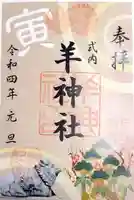 奉拝
式内
羊神社
令和四年 元旦
寅